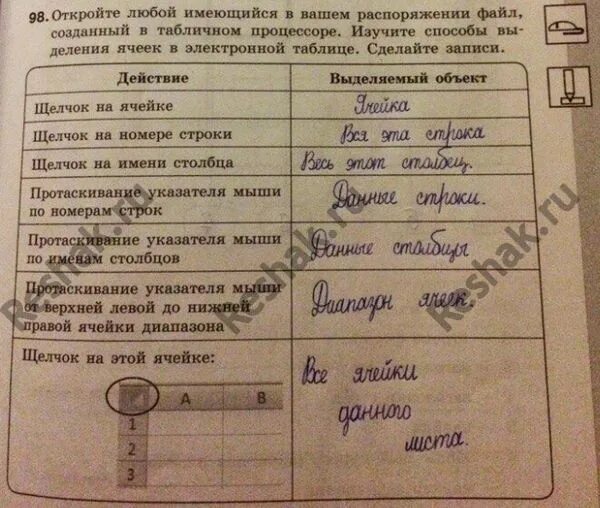 98. Откройте любой имеющийся в вашем распоряжении файл,
созданный в табличном процессоре. Изучите способы вы-
деления ячеек в электронной таблице. Сделайте записи.
Действие Выделяемый объект
Щелчок на ячейке Ячейка
Щелчок на номере строки Вся эта строка
Щелчок на имени столбца Весь этот столбец.
Протаскивание указателя мыши
по номерам строк
Данные строки.
Протаскивание указателя мыши
по именам столбцов
Данные столбцы
Протаскивание указателя мыши
от верхней левой до нижней
правой ячейки диапазона
Диапазон ячеек.
Щелчок на этой ячейке:
A B
1
2
3
Все ячейки
данного
листа.
Reshak.ru
Reshak.ru
Reshak.ru